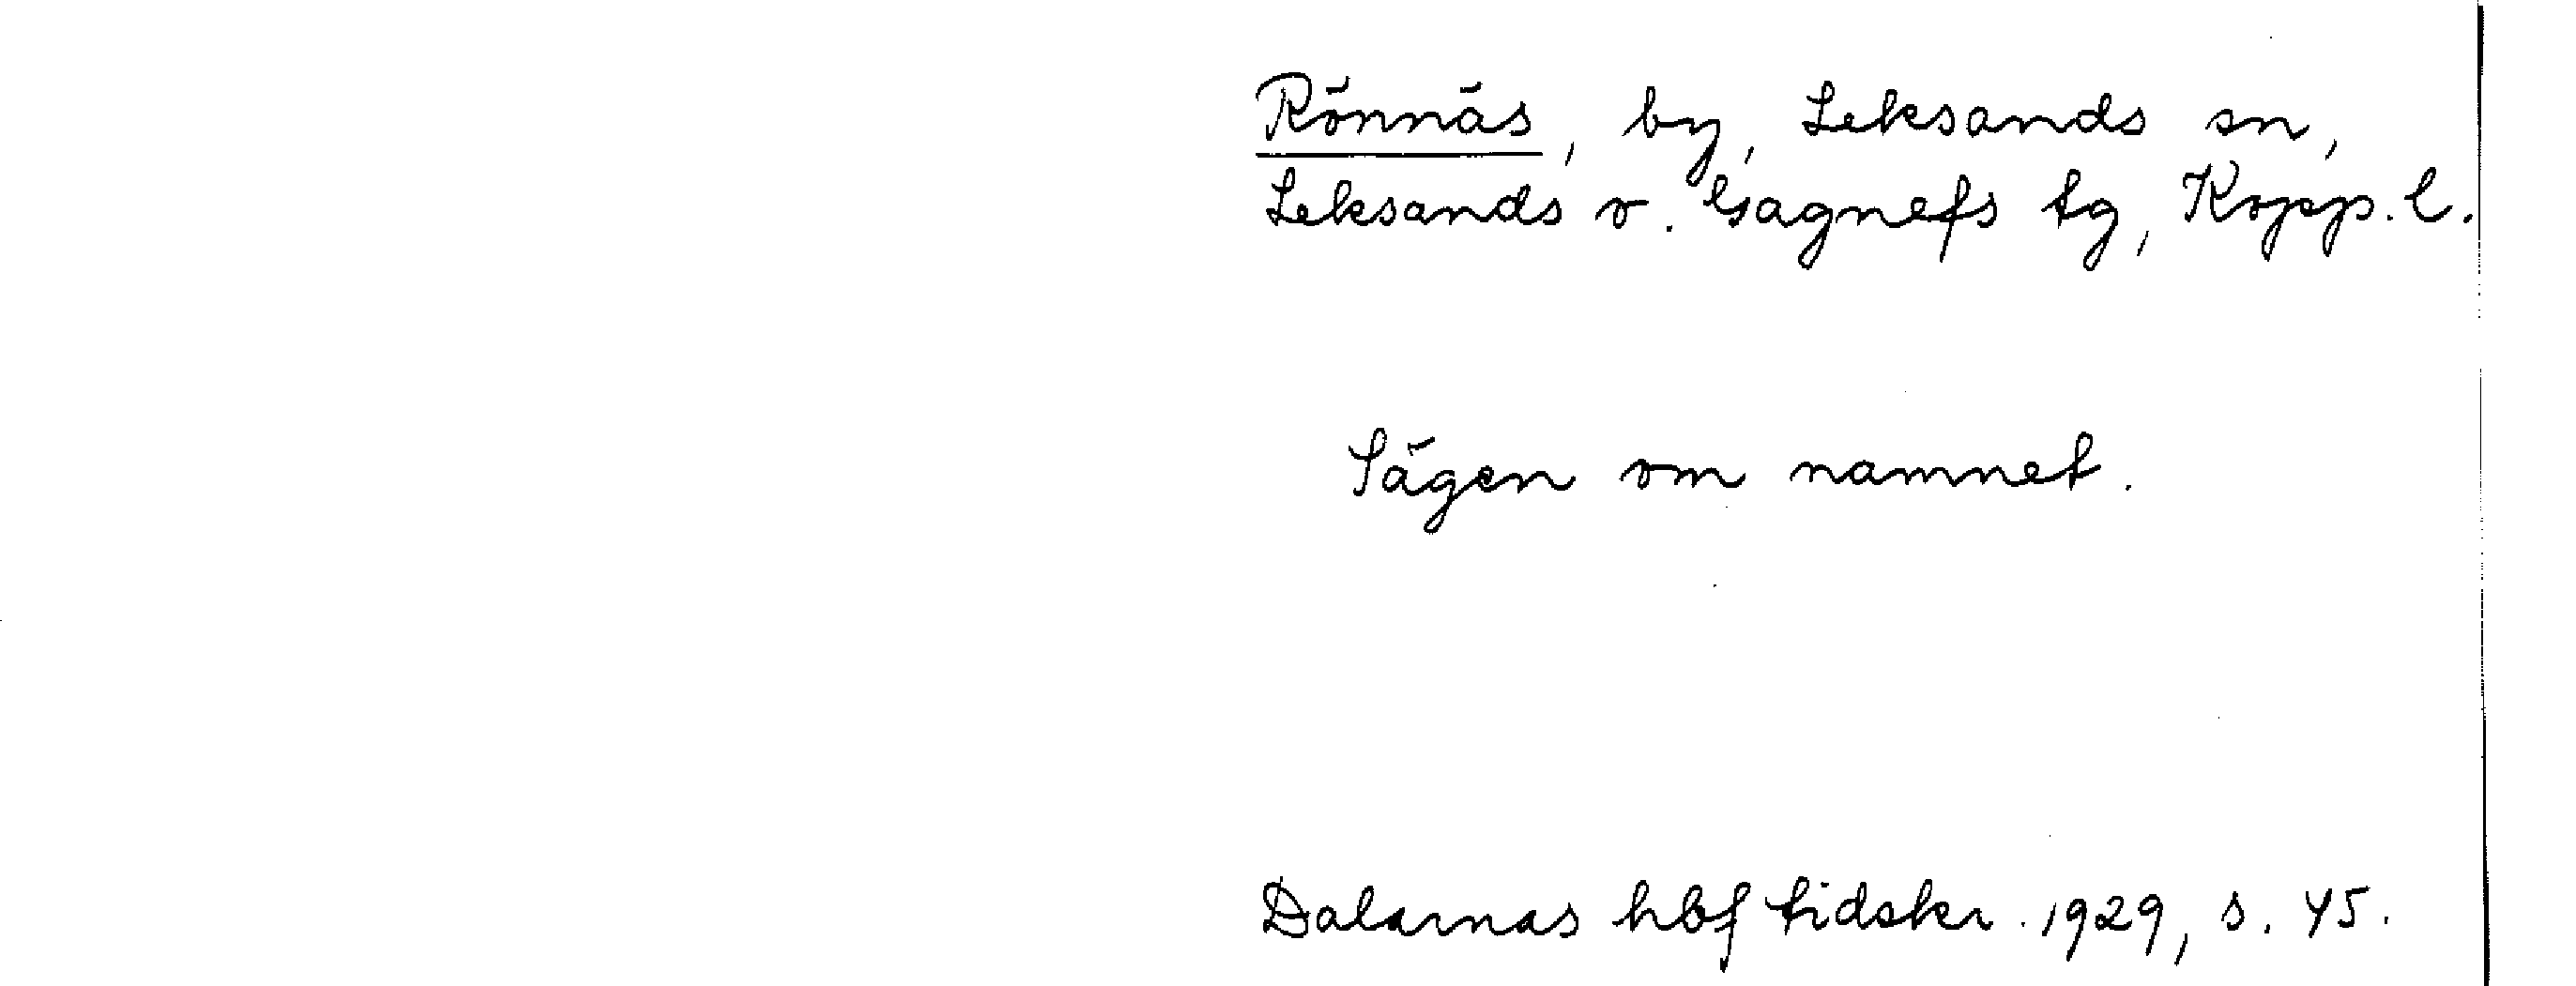 Rönnäs, by, Leksands sn,
Leksands o. Gagnefs tg, Kopp. l.
Sägen om namnet.
Dalarnas hbf tidskr. 1929, s. 45.